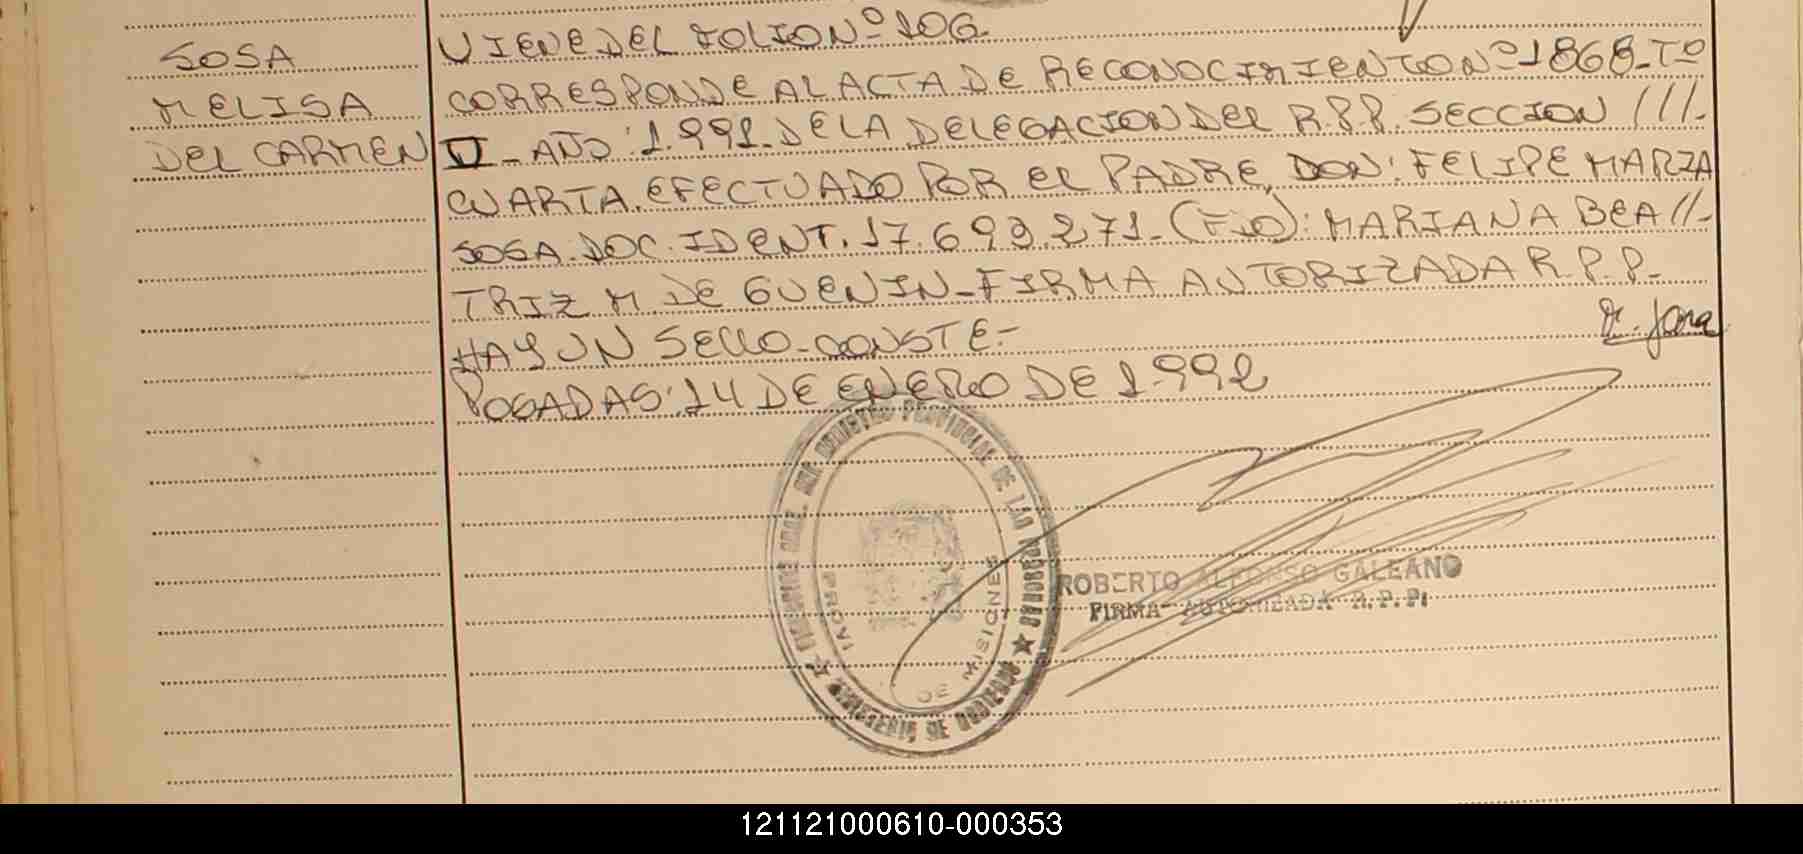 SOSA
MELISA
DEL CARMEN
VIENE DEL FOLIO Nº 106
CORRESPONDE AL ACTA DE RECONOCIMIENTO Nº 1868-Tº
VI-AÑO:1.991-DE LA DELEGACION DEL R.P.P. SECCION ///-
CUARTA.EFECTUADO POR EL PADRE, DON: FELIPE MARIA
SOSA.DOC.IDENT.17.693.271-(FDO):MARIANA BEA//-
TRIZ M DE GUENIN-FIRMA AUTORIZADA R.P.P-
HAY UN SELLO-CONSTE-
POSADAS:14 DE ENERO DE 1.992
REGISTRO PROVINCIAL DE LAS PERSONAS
★ MINISTERIO DE GOBIERNO ★
PROVINCIA
DE MISIONES
ROBERTO ALFONSO GALEANO
FIRMA AUTORIZADA R.P.P.
121121000610-000353